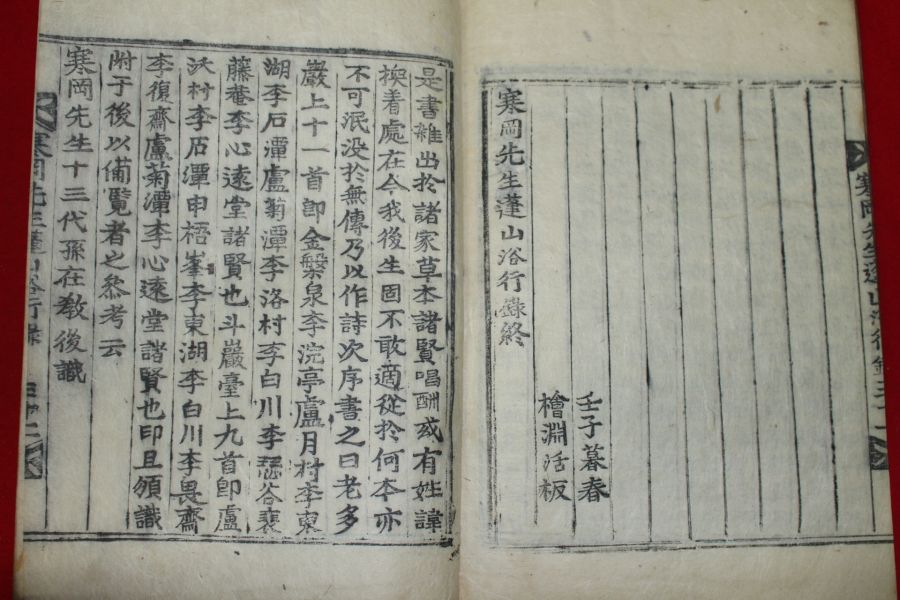 寒岡先生蓬山浴行錄
寒岡先生蓬山浴行錄終
壬子暮春
檜淵活板
是書雜出於諸家草本諸賢唱酬或有姓諱
換着處在今我後生固不敢適從於何本亦
不可泯没於無傳乃以作詩次序書之曰老多
巖上十一首卽金槃泉李浣亭盧月村李東
湖李石潭盧菊潭李洛村李白川李瑟谷裵
藤菴李心遠堂諸賢也斗巖臺上九首卽盧
沃村李石潭申梧峯李東湖李白川李畏齋
李復齋盧菊潭李心遠堂諸賢也印且頒識
附于後以備覽者之叅考云
寒岡先生十三代孫在敎後識
寒岡先生蓬山浴行錄